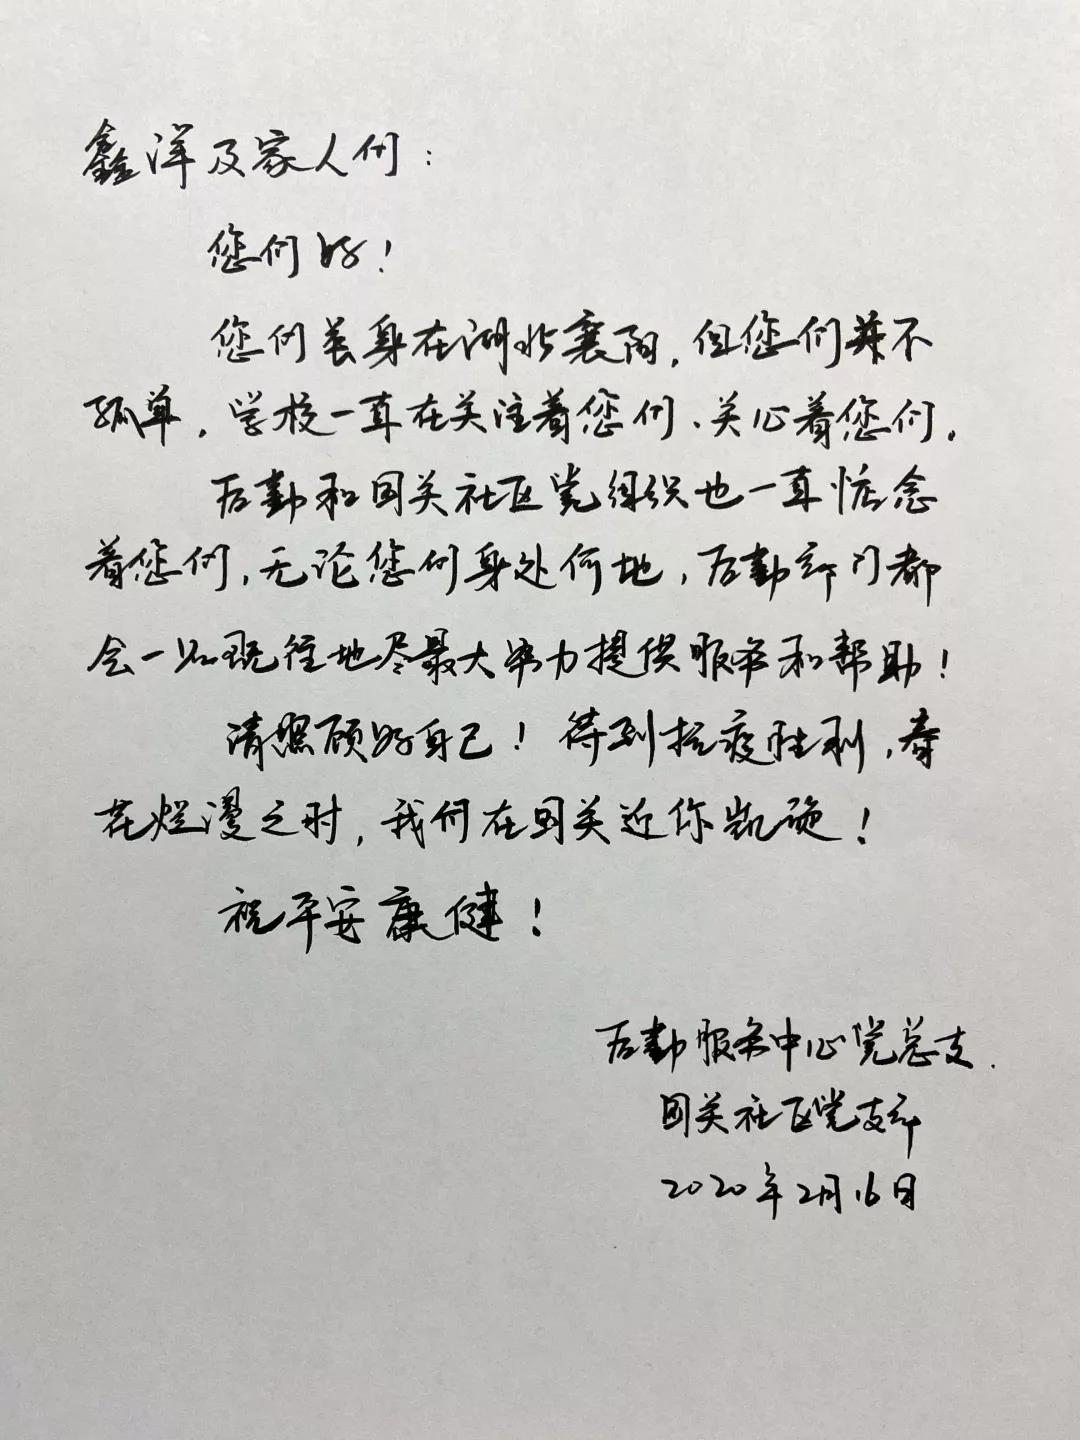 鑫洋及家人们：
您们好！
您们虽身在湖北襄阳，但您们并不
孤单，学校一直在关注着您们、关心着您们。
后勤和国关社区党组织也一直惦念
着您们，无论您们身处何地，后勤部门都
会一如既往地尽最大努力提供服务和帮助！
请照顾好自己！待到抗疫胜利，春
花烂漫之时，我们在国关迎你凯旋！
祝平安康健！
后勤服务中心党总支
国关社区党支部
2020年2月16日